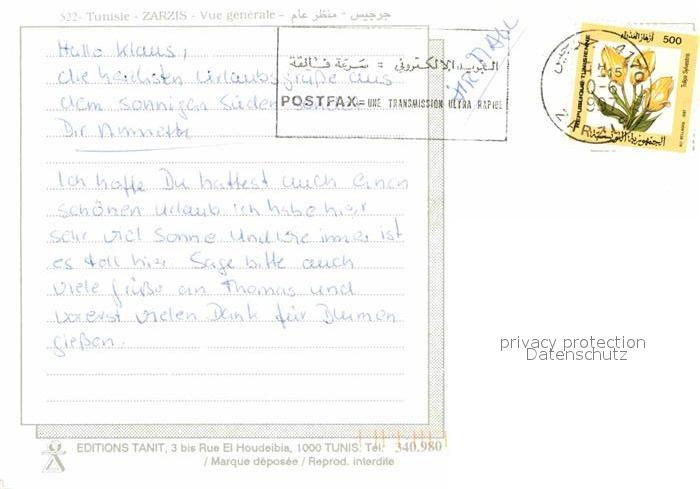 522- Tunisie - ZARZIS - Vue générale - جرجيس - منظر عام
Hallo Klaus,
die herzlichsten Urlaubsgrüße aus
dem sonnigen Süden sendet
Dir Annette
Ich hoffe Du hattest auch einen
schönen Urlaub ich habe hier
sehr viel Sonne und wie immer ist
es toll hier. Sage bitte auch
viele Grüße an Thomas und
vorerst vielen Dank für Blumen
gießen.
البريد الإلكتروني = سرعة فائقة
POSTFAX = UNE TRANSMISSION ULTRA RAPIDE
PAR AVION
500
REPUBLIQUE TUNISIENNE
Tulipa Sylvestris
الجمهورية التونسية
privacy protection
Datenschutz
EDITIONS TANIT, 3 bis Rue El Houdeibia, 1000 TUNIS. Tél: 340.980
/ Marque déposée / Reprod. interdite